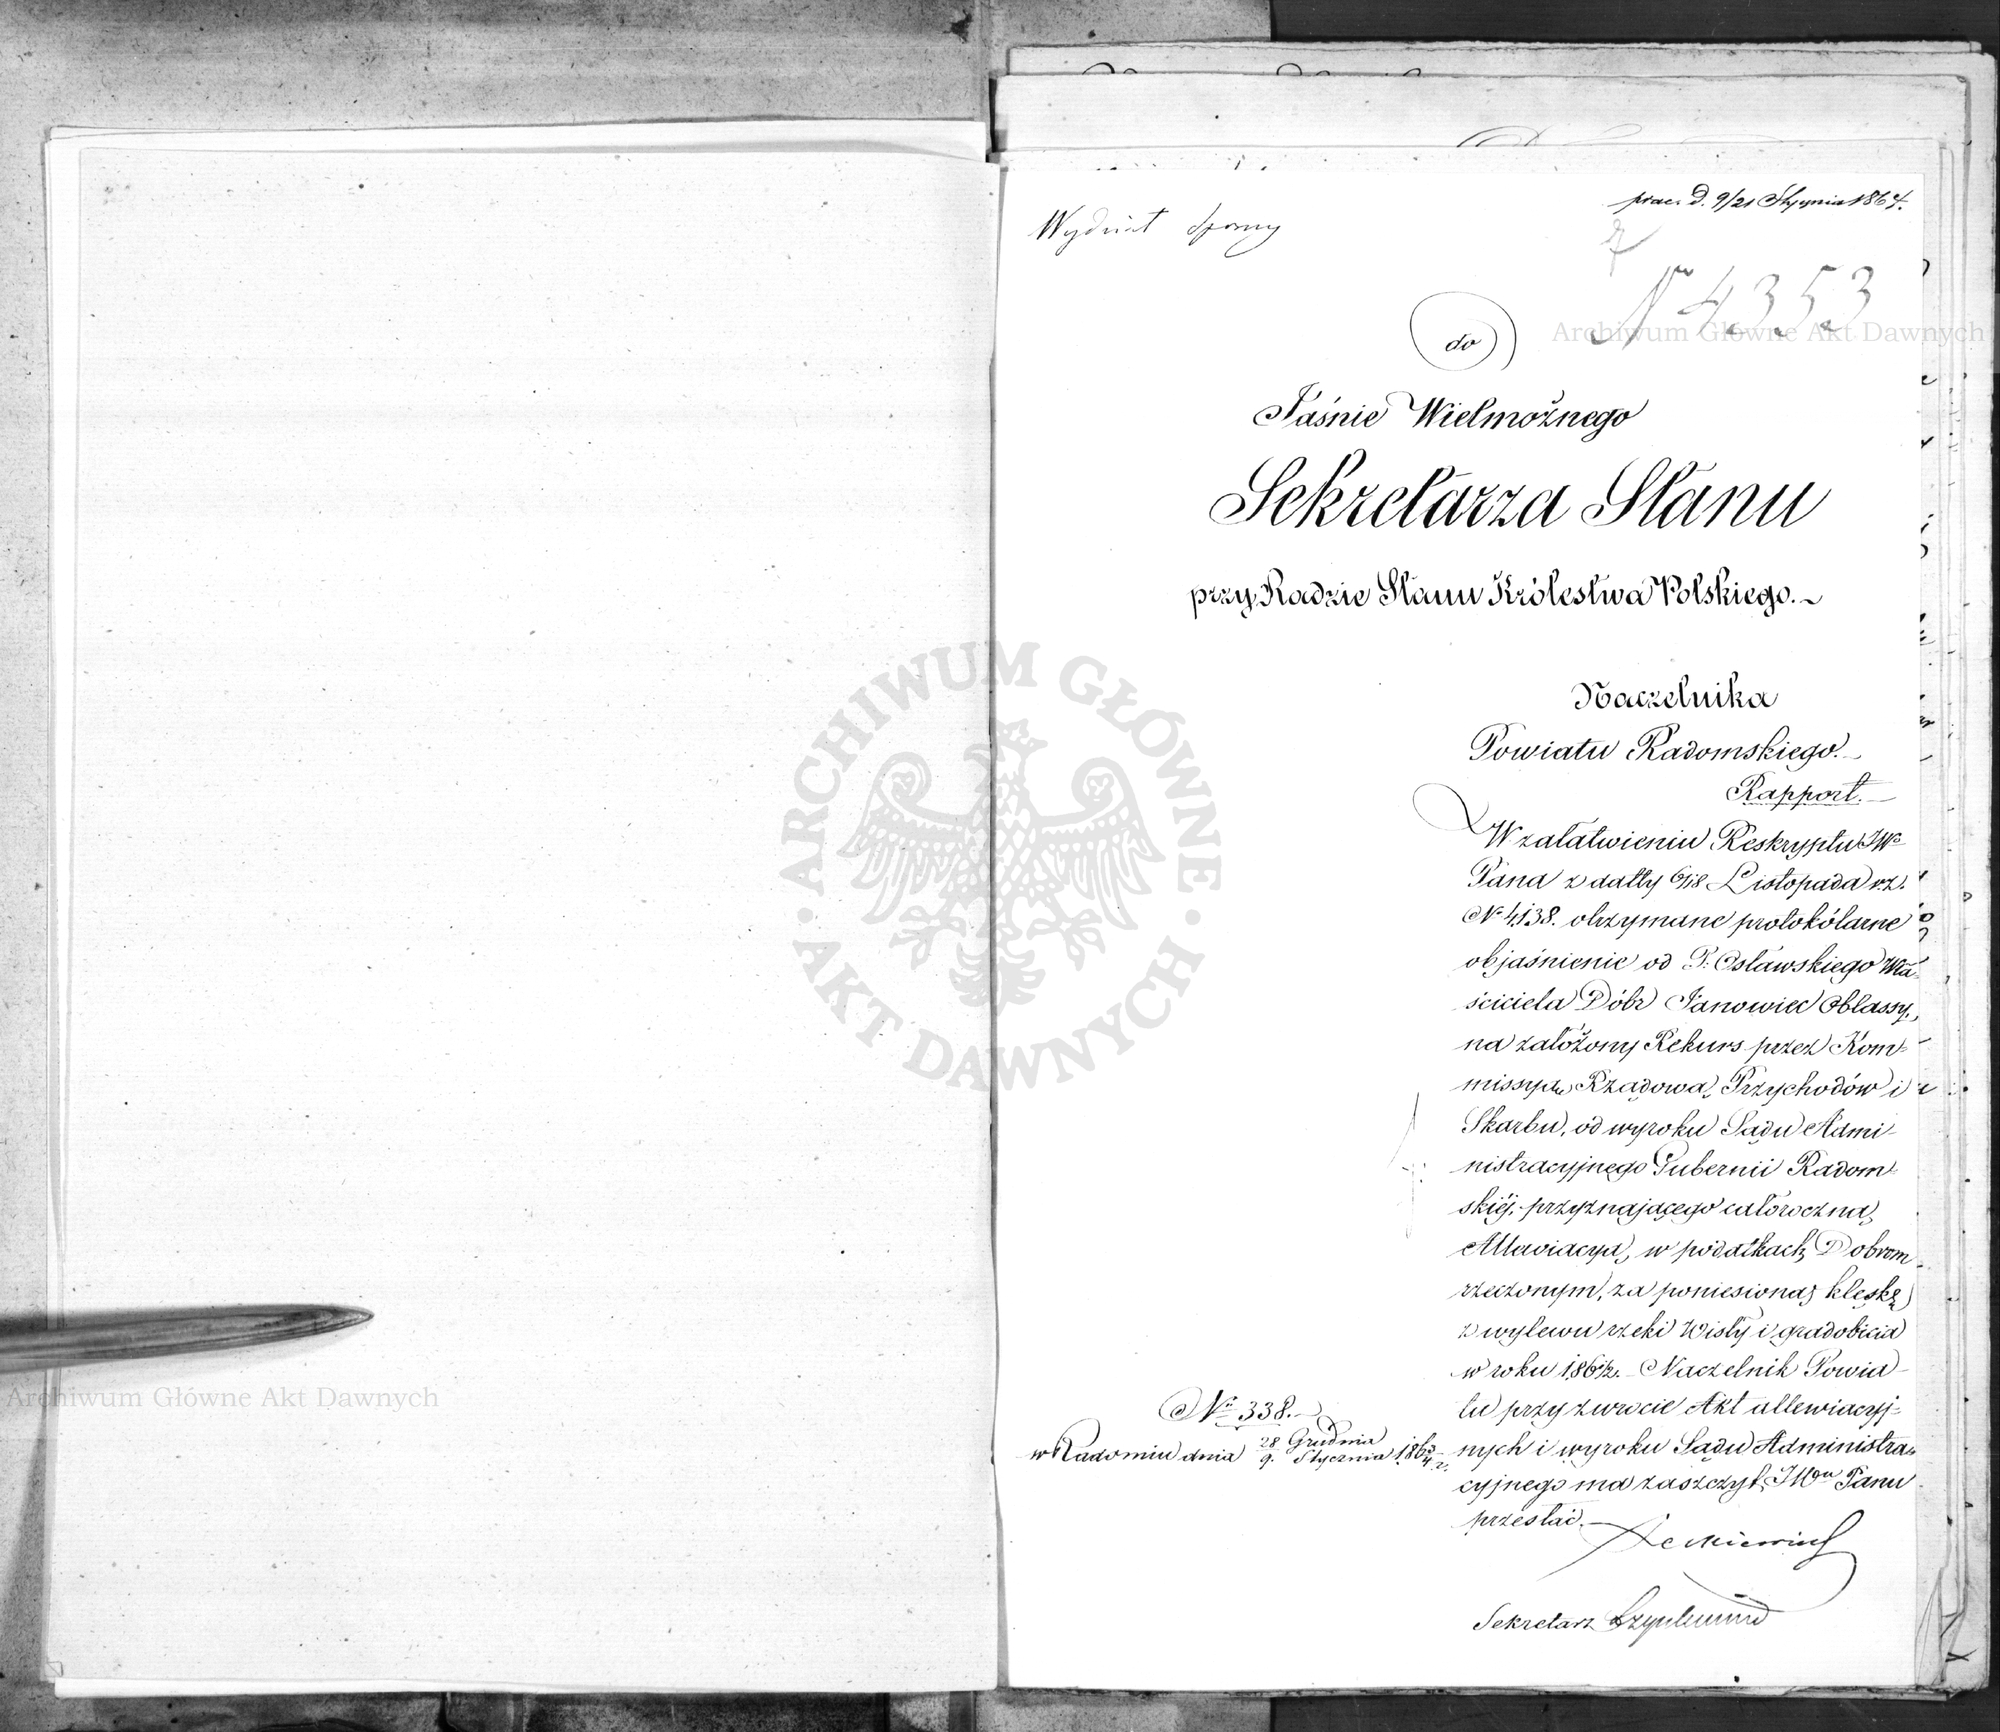 praes. d. 9/21 Stycznia 1864.
Wydział Sporny
N 4353
do
Jaśnie Wielmożnego
Sekretarza Stanu
przy Radzie Stanu Królestwa Polskiego.
Naczelnika
Powiatu Radomskiego.
Rapport.
W załatwieniu Reskryptu JWo
Pana z datty 6/18 Listopada r.z.
N 4138. otrzymane protokólarne
objaśnienie od P. Osławskiego Wła-
ściciela Dóbr Janowiec Oblassy,
na założony Rekurs przez Kom-
missyą Rządową Przychodów i
Skarbu, od wyroku Sądu Admi-
nistracyjnego Gubernii Radom-
skiéj, przyznającego całoroczną
Allewiacyą, w podatkach Dobrom
rzeczonym, za poniesioną klęskę
z wylewu rzeki Wisły i gradobicia
w roku 1861/2. Naczelnik Powia-
tu przy zwrocie Akt allewiacyj-
nych i wyroku Sądu Administra-
cyjnego ma zaszczyt JWou Panu
przesłać.
No 338.
w Radomiu dnia 28 Grudnia / 9. Stycznia 1863/4 r.
Sekretarz
ARCHIWUM GŁÓWNE
AKT DAWNYCH
Archiwum Główne Akt Dawnych
Archiwum Główne Akt Dawnych